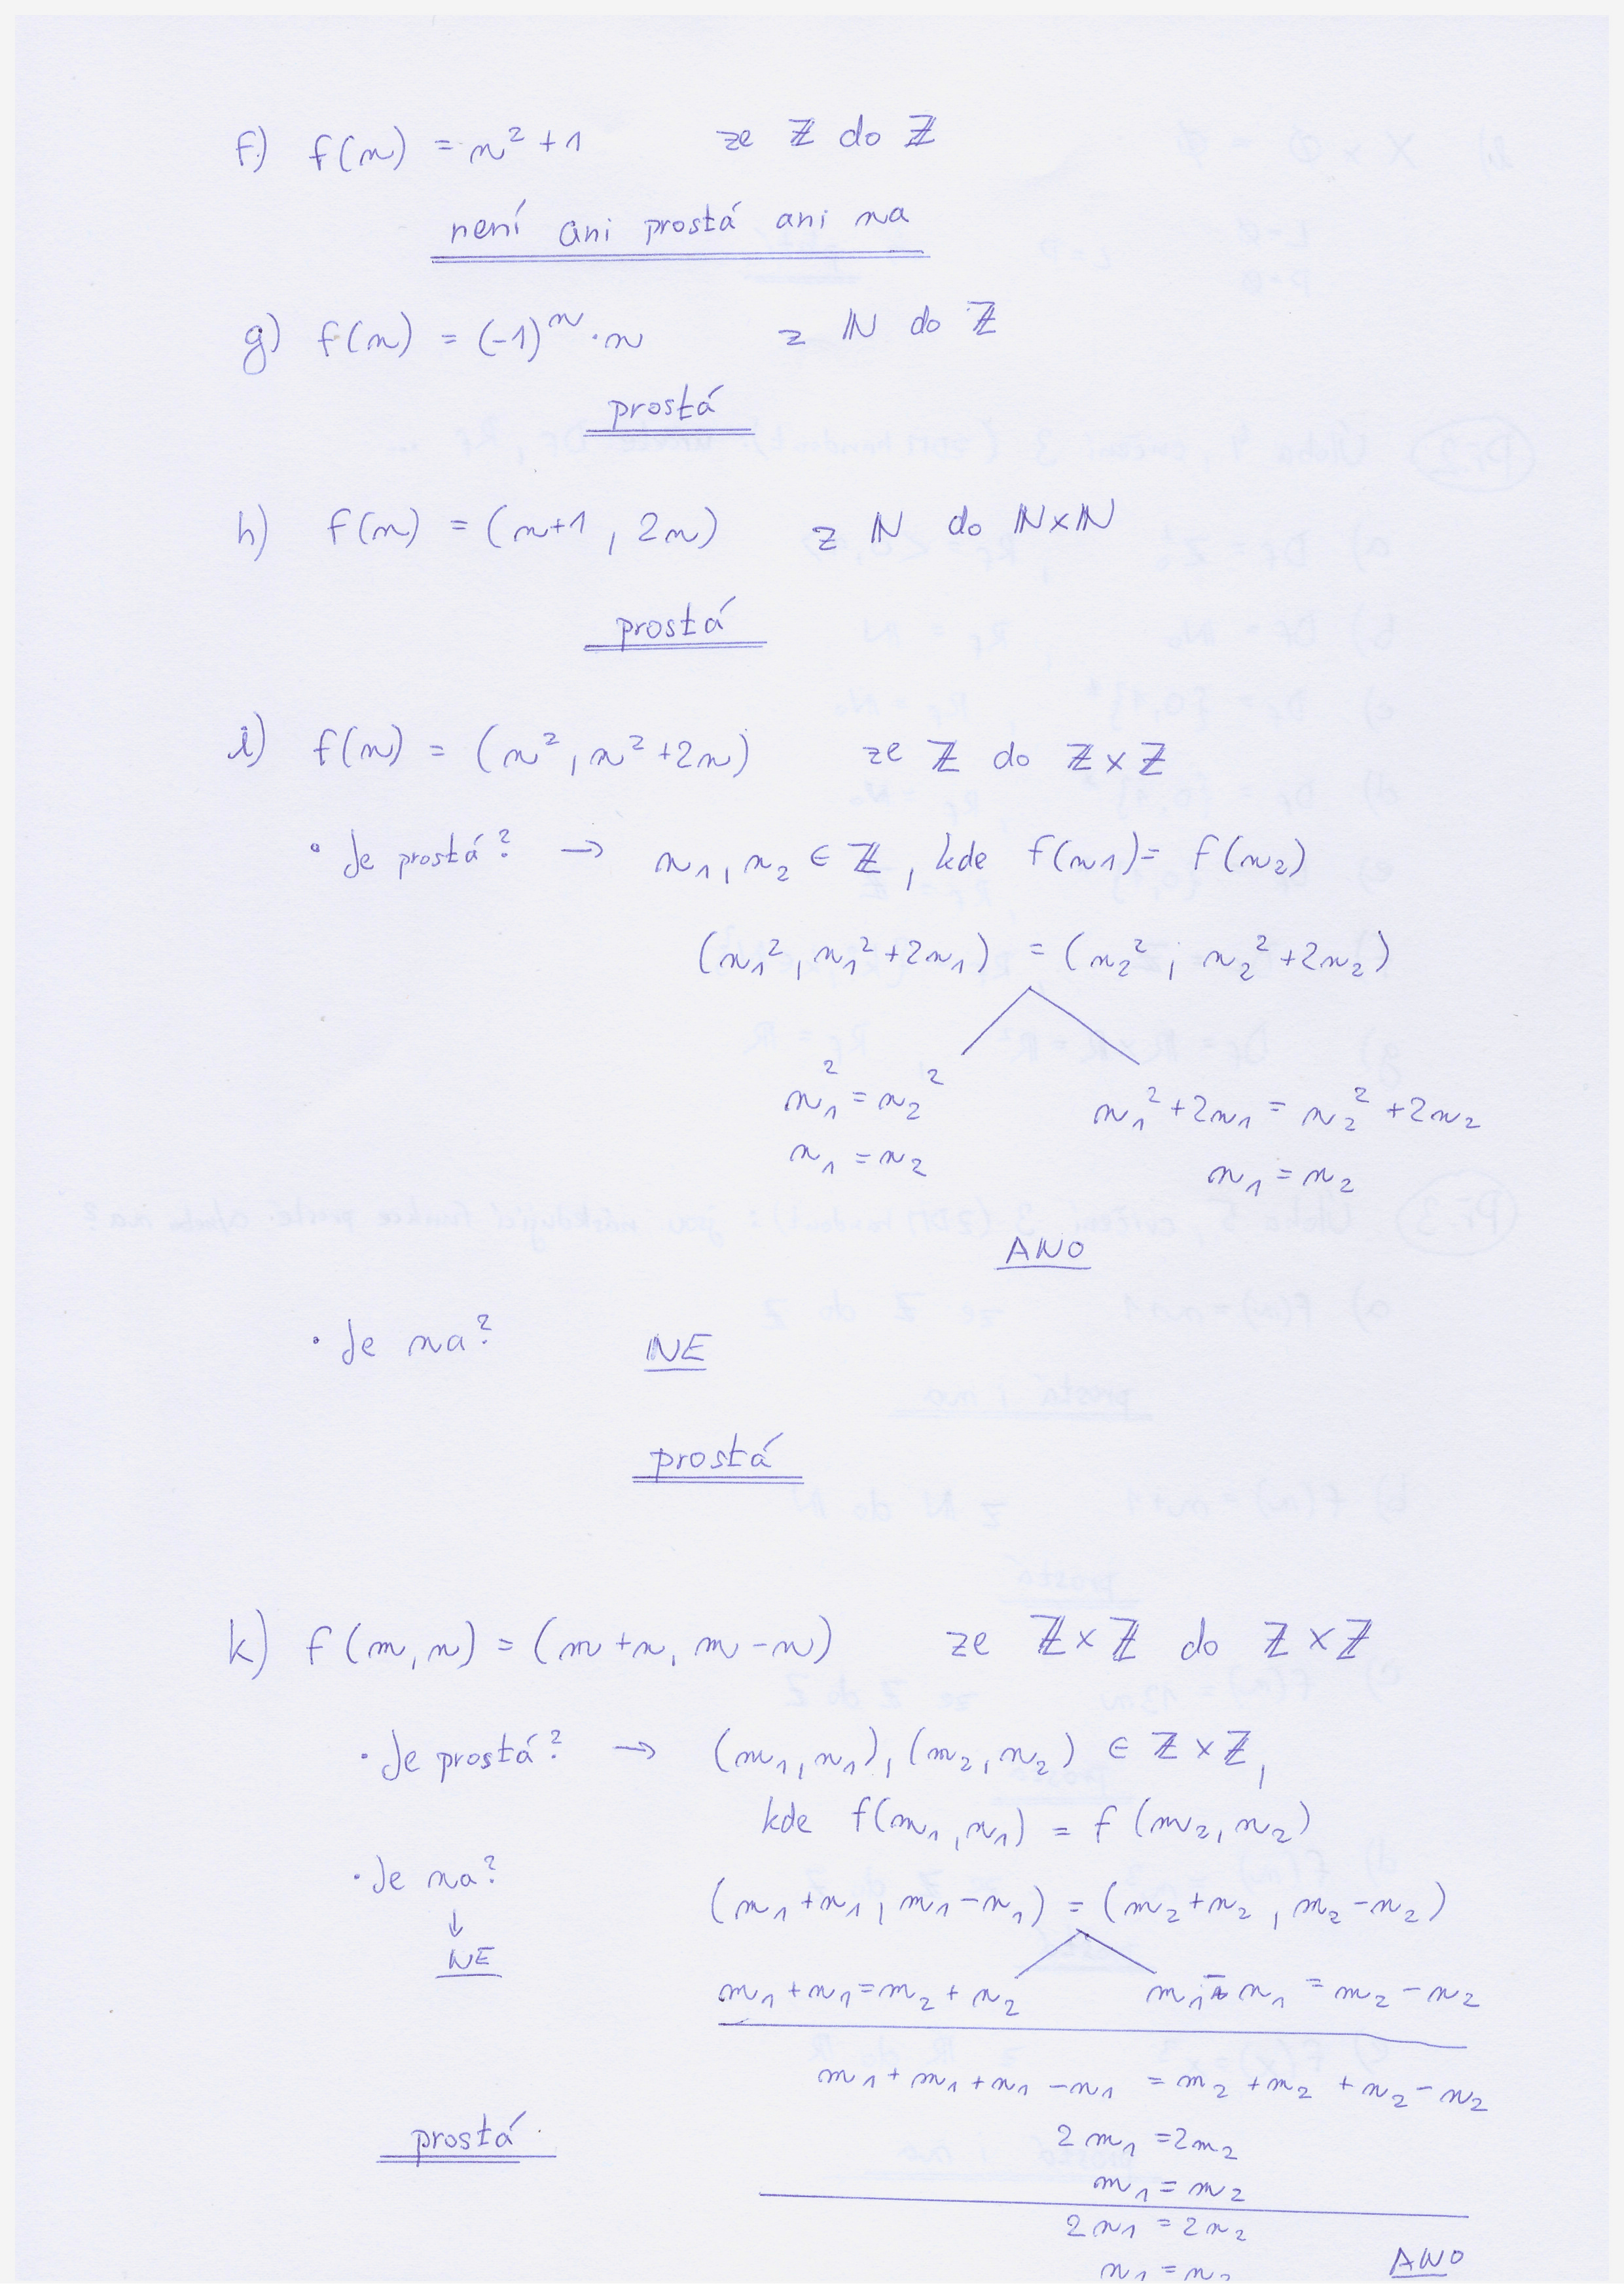 f) f(n) = n² + 1 ze ℤ do ℤ
není ani prostá ani na
g) f(n) = (-1)ⁿ · n z ℕ do ℤ
prostá
h) f(n) = (n+1, 2n) z ℕ do ℕ×ℕ
prostá
i) f(n) = (n², n² + 2n) ze ℤ do ℤ×ℤ
• Je prostá? → n₁, n₂ ∈ ℤ, kde f(n1) = f(n₂)
(n₁², n₁² + 2n₁) = (n₂²; n₂² + 2n₂)
n₁² = n₂² n₁² + 2n₁ = n₂² + 2n₂
n₁ = n₂ n₁ = n₂
ANO
• Je na? NE
prostá
k) f(m, n) = (m + n, m - n) ze ℤ×ℤ do ℤ×ℤ
• Je prostá? → (m₁, n₁), (m₂, n₂) ∈ ℤ×ℤ,
kde f(m₁, n₁) = f(m₂, n₂)
• Je na?
↓
NE
(m₁ + n₁, m₁ - n₁) = (m₂ + n₂, m₂ - n₂)
m₁ + n₁ = m₂ + n₂ m₁ - n₁ = m₂ - n₂
m₁ + m₁ + n₁ - n₁ = m₂ + m₂ + n₂ - n₂
2m₁ = 2m₂
m₁ = m₂
2n₁ = 2n₂
n₁ = n₂
ANO
prostá